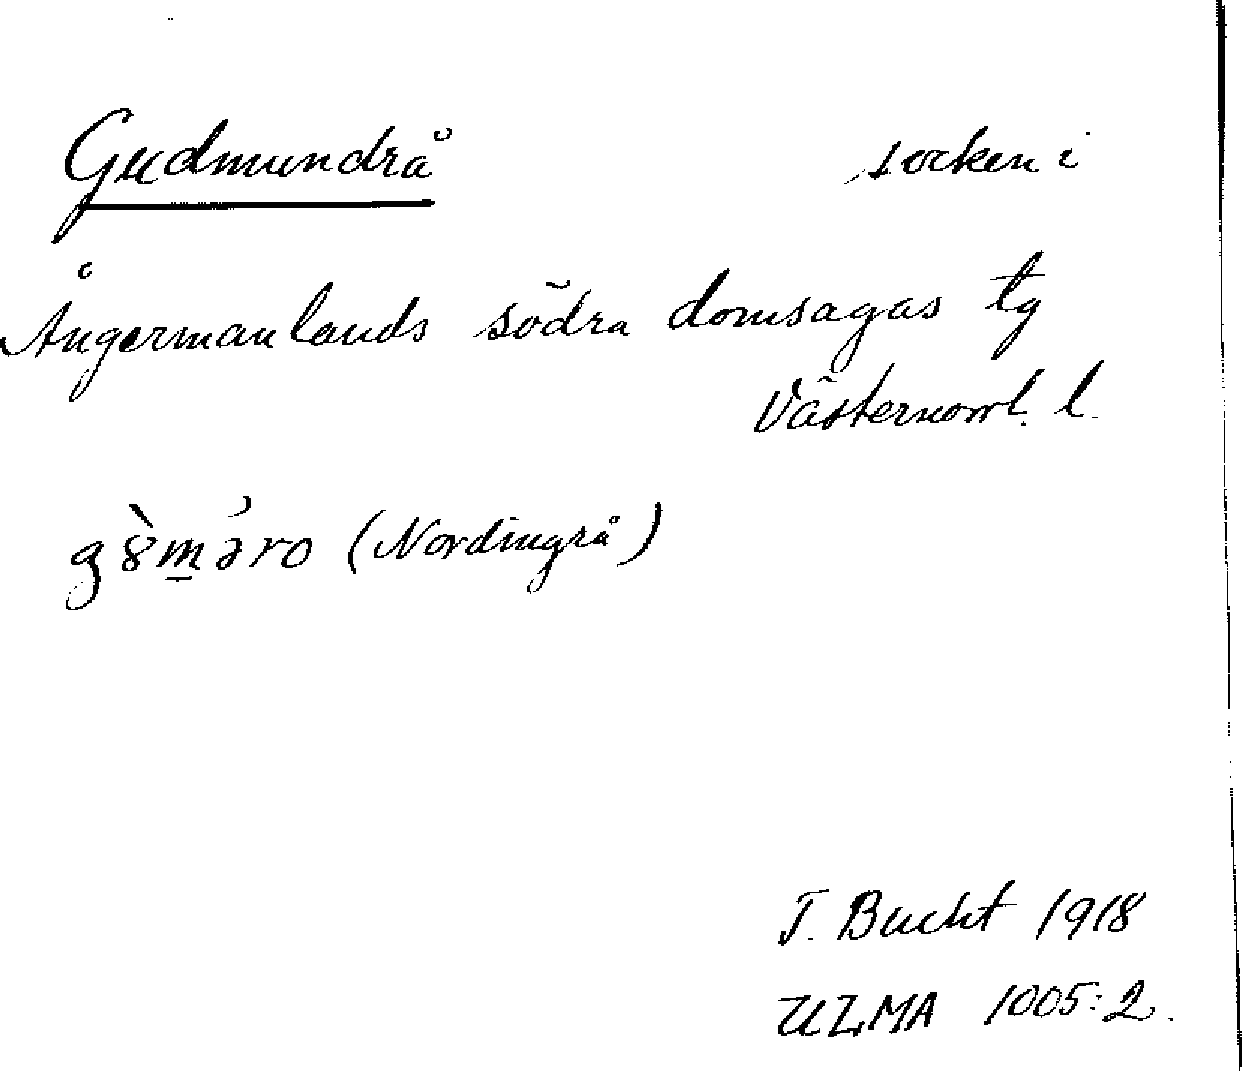 Gudmundrå socken i
Ångermanlands södra domsagas tg
Västernorrl. l.
g8̀m̱ə́ro (Nordingrå)
T. Bucht 1918
ULMA 1005:2.